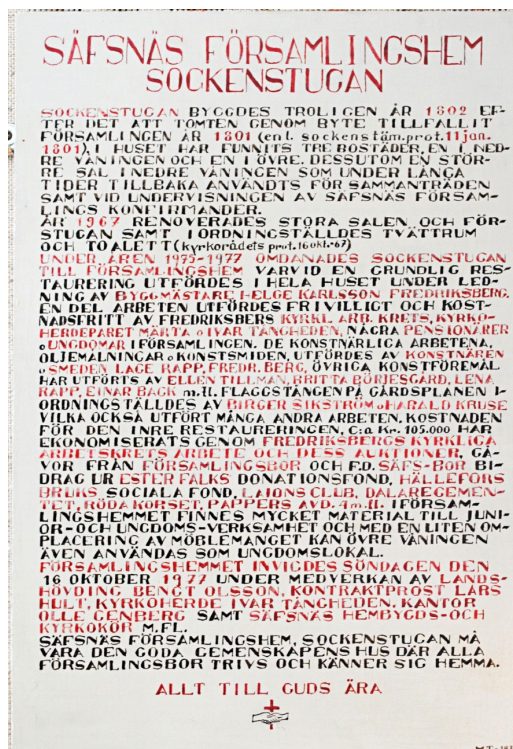 SÄFSNÄS FÖRSAMLINGSHEM
SOCKENSTUGAN
SOCKENSTUGAN BYGGDES TROLIGEN ÅR 1802 EF-
TER DET ATT TOMTEN GENOM BYTE TILLFALLIT
FÖRSAMLINGEN ÅR 1801 (enl. sockenstäm.prot. 11 jan.
1801). I HUSET HAR FUNNITS TRE BOSTÄDER, EN I NED-
RE VÅNINGEN OCH EN I ÖVRE. DESSUTOM EN STÖR-
RE SAL I NEDRE VÅNINGEN SOM UNDER LÅNGA
TIDER TILLBAKA ANVÄNDTS FÖR SAMMANTRÄDEN
SAMT VID UNDERVISNINGEN AV SÄFSNÄS FÖRSAM-
LINGS KONFIRMANDER.
ÅR 1967 RENOVERADES STORA SALEN OCH FÖR-
STUGAN SAMT IORDNINGSTÄLLDES TVÄTTRUM
OCH TOALETT (kyrkorådets prot. 16 okt. -67)
UNDER ÅREN 1975-1977 OMDANADES SOCKENSTUGAN
TILL FÖRSAMLINGSHEM VARVID EN GRUNDLIG RES-
TAURERING UTFÖRDES I HELA HUSET UNDER LED-
NING AV BYGGMÄSTARE, HELGE KARLSSON FREDRIKSBERG.
EN DEL ARBETEN UTFÖRDES FRIVILLIGT OCH KOST-
NADSFRITT AV FREDRIKSBERS KYRKL. ARB. KRETS, KYRKO-
HERDEPARET MÄRTA o IVAR TÅNGHEDEN, NÅGRA PENSIONÄRER
o UNGDOMAR I FÖRSAMLINGEN. DE KONSTNÄRLIGA ARBETENA,
OLJEMÅLNINGAR o KONSTSMIDEN, UTFÖRDES AV KONSTNÄREN
o SMEDEN LAGE RAPP, FREDR. BERG, ÖVRIGA KONSTFÖREMÅL
HAR UTFÖRTS AV ELLEN TILLMAN, BRITTA BÖRJESGÅRD, LENA
RAPP, EINAR BACK m.fl. FLAGGSTÅNGEN PÅ GÅRDSPLANEN I-
ORDNINGSTÄLLDES AV BIRGER SIKSTRÖM o HARALD KRUSE
VILKA OCKSÅ UTFÖRT MÅNGA ANDRA ARBETEN. KOSTNADEN
FÖR DEN INRE RESTAURERINGEN, C:a Kr. 105.000 HAR
EKONOMISERATS GENOM FREDRIKSBERGS KYRKLIGA
ARBETSKRETS ARBETE OCH DESS AUKTIONER, GÅ-
VOR FRÅN FÖRSAMLINGSBOR OCH F.D. SÄFS-BOR BI-
DRAG UR ESTER FALKS DONATIONSFOND, HÄLLEFORS
BRUKS SOCIALA FOND, LAIONS CLUB, DALAREGEMEN-
TET, RÖDA KORSET, PAPPERS AVD. 4 m.fl. I FÖRSAM-
LINGSHEMMET FINNES MYCKET MATERIAL TILL JUNI-
OR-OCH UNGDOMS-VERKSAMHET OCH MED EN LITEN OM-
PLACERING AV MÖBLEMANGET KAN ÖVRE VÅNINGEN
ÄVEN ANVÄNDAS SOM UNGDOMSLOKAL.
FÖRSAMLINGSHEMMET INVIGDES SÖNDAGEN DEN
16 OKTOBER 1977 UNDER MEDVERKAN AV LANDS-
HÖVDING BENGT OLSSON, KONTRAKTPROST LARS
HULT, KYRKOHERDE IVAR TÅNGHEDEN. KANTOR
OLLE GENBERG SAMT SÄFSNÄS HEMBYGDS-OCH
KYRKOKÖR M.FL.
SÄFSNÄS FÖRSAMLINGSHEM, SOCKENSTUGAN MÅ
VARA DEN GODA GEMENSKAPENS HUS DÄR ALLA
FÖRSAMLINGSBOR TRIVS OCH KÄNNER SIG HEMMA.
ALLT TILL GUDS ÄRA